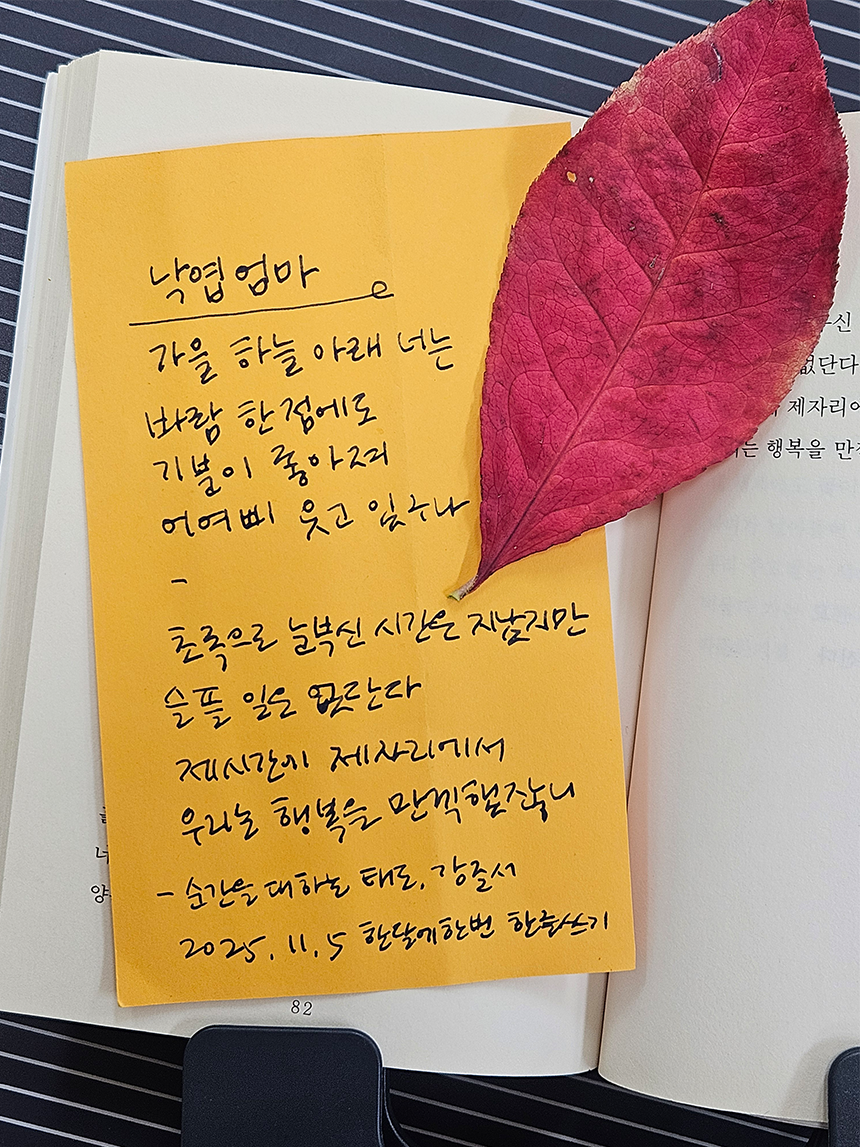 낙엽엄마
가을 하늘 아래 너는
바람 한 점에도
기분이 좋아져
어여삐 웃고 있구나
-
초록으로 눈부신 시간은 지났지만
슬플 일은 없단다
제시간에 제자리에서
우리는 행복을 만끽했잖니
- 순간을 대하는 태도, 강준서
2025. 11. 5 한달에한번 한줄쓰기
82
신
없단다
제자리에
는 행복을 만